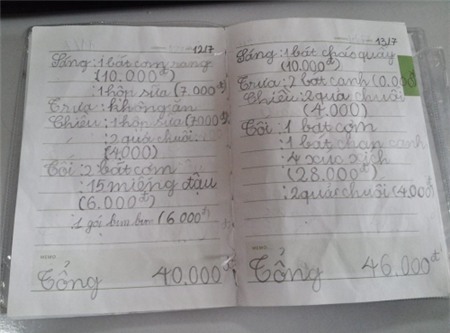 12/7
Sáng: 1 bát cơm rang
(10.000đ)
: 1 hộp sữa (7.000đ)
Trưa: không ăn
Chiều: 1 hộp sữa (7000đ)
: 2 quả chuối
(4.000)
Tối: 2 bát cơm
: 15 miếng đậu
(6.000đ)
: 1 gói bim bim (6.000đ)
MEMO
Tổng 40.000đ
13/7
Sáng: 1 bát cháo quẩy
(10.000đ)
Trưa: 2 bát canh (0.00đ)
Chiều: 2 quả chuối
(4.000)
Tối: 1 bát cơm
: 1 bát chan canh
: 4 xúc xích
(28.000đ)
: 2 quả chuối (4.00đ)
MEMO
Tổng 46.000đ